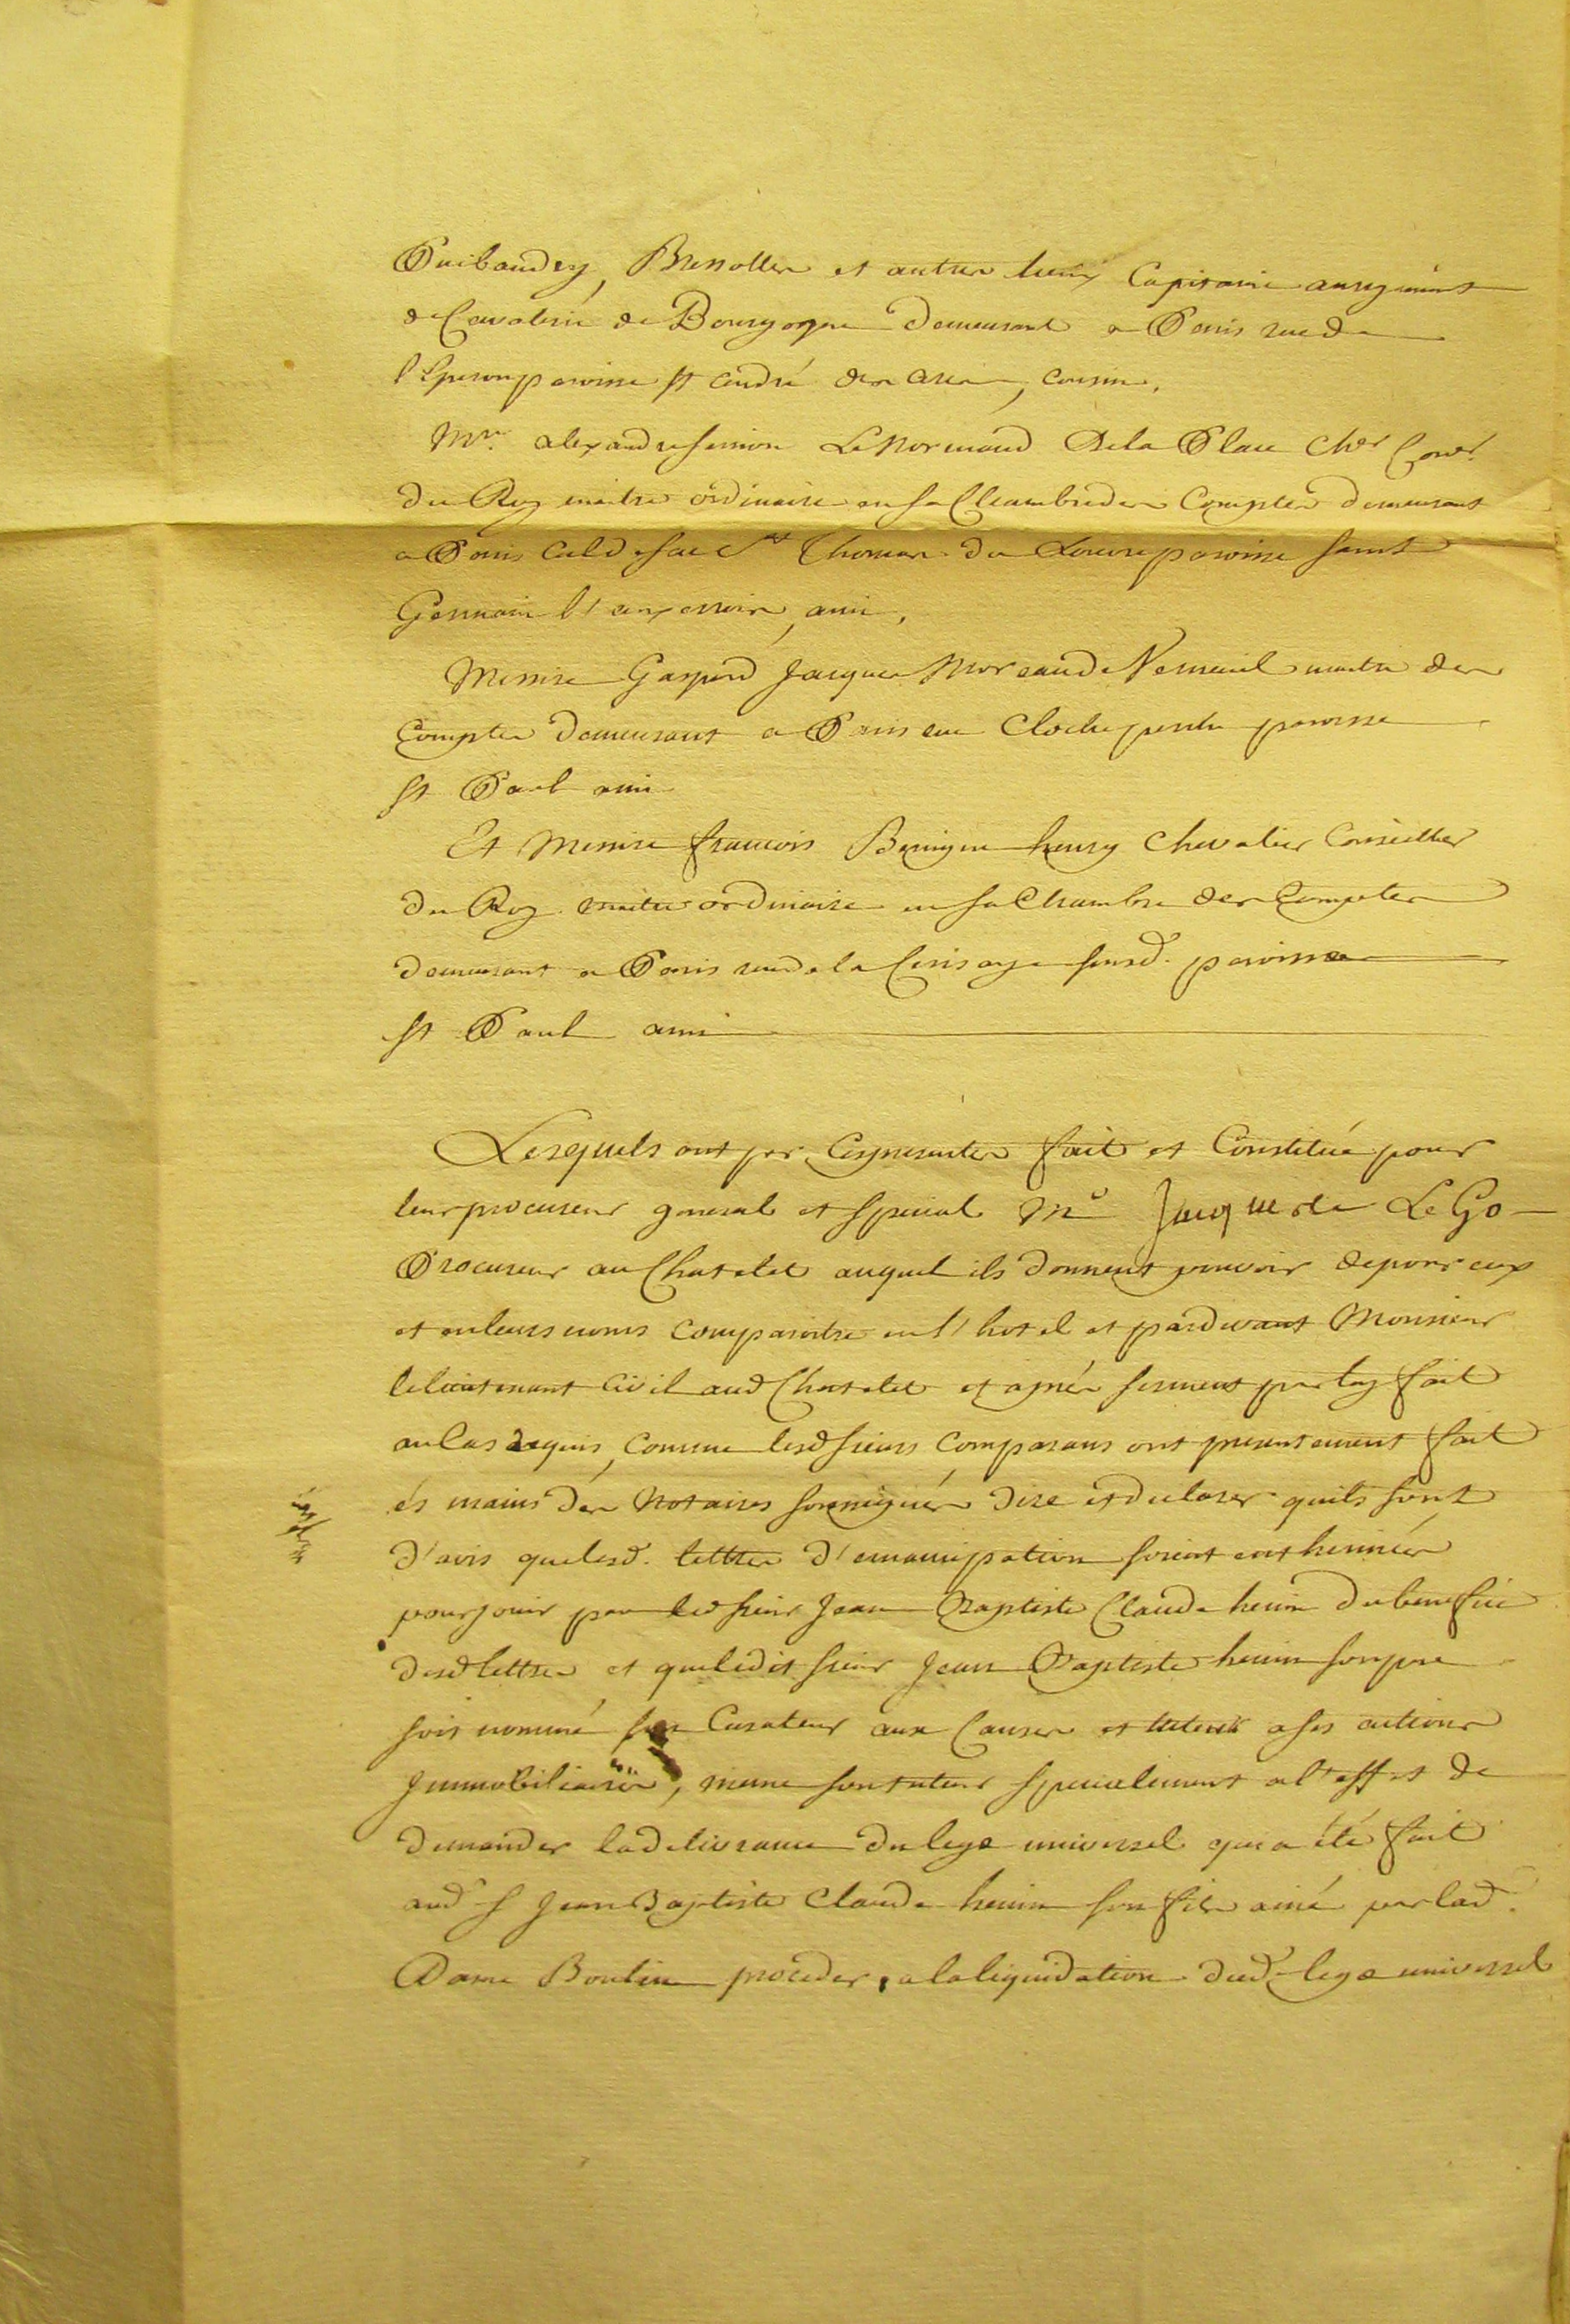 Puibaudry, Bresolles et autres lieux Capitaine au regiment
de Cavalerie de Bourgogne demeurant a Paris rue de
l'Eperon paroisse St andré des arcs, cousin,
Mre. alexandre Simon Le Normand De la Place Cher Coner.
du Roy maitre ordinaire en sa Chambre des Comptes demeurant
a Paris Cul de sac St Thomas du Louvre paroisse saint
Germain l'auxerrois, ami,
Messire Gaspard Jacques Moreau de Nemeuil maitre des
Comptes demeurant a Paris rue Cloche perche paroisse
St Paul ami
Et Messire francois Benigne henry Chevalier Conseiller
du Roy maitre ordinaire en sa Chambre des Comptes
demeurant a Paris rue de la Cerisaye susd. paroisse
St Paul ami
Lesquels ont par Ces presentes fait et Constitué pour
leur procureur general et special Me Jacques Le Go
Procureur au Chatelet auquel ils donnent pouvoir de pour eux
et en leurs noms comparoitre en l'hotel et pardevant Monsieur
le lieutenant Civil aud Chatelet et aprés serment par luy fait
au Cas requis, comme lesd sieurs comparans ont presentement fait
és mains des Notaires soussignés dire et declarer quils sont
d'avis que lesd. lettres d'emancipation soient entherinées
pour jouir par led sieur Jean Baptiste Claude henin du benefice
desd lettres et que ledit sieur Jean Baptiste henin son pere
soit nommé son Curateur aux Causes et tuteur a ses actions
Immobiliaires, meme son tuteur specialement a l'effet de
demander la delivrance du legs universel qui a été fait
aud S Jean Baptiste Claude henin son fils ainé par lad.
Dame Boutin proceder, a la liquidation dud. legs universel